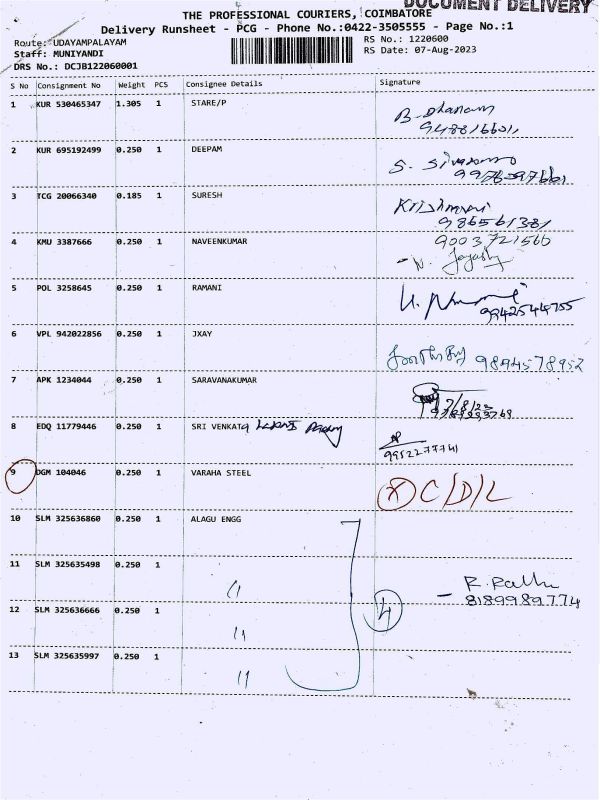 DOCUMENT DELIVERY
THE PROFESSIONAL COURIERS, COIMBATORE
Delivery Runsheet - PCG - Phone No.:0422-3505555 - Page No.:1
Route: UDAYAMPALAYAM RS No.: 1220600
Staff: MUNIYANDI RS Date: 07-Aug-2023
DRS No.: DCJB122060001
S No Consignment No Weight PCS Consignee Details Signature
1 KUR 530465347 1.305 1 STARE/P B. Dhanam
2 KUR 695192499 0.250 1 DEEPAM S.
3 TCG 20066340 0.185 1 SURESH
9865561381
4 KMU 3387666 0.250 1 NAVEENKUMAR 9003721560
5 POL 3258645 0.250 1 RAMANI
9942544755
6 VPL 942022856 0.250 1 JXAY 9894578952
7 APK 1234044 0.250 1 SARAVANAKUMAR
8 EDQ 11779446 0.250 1 SRI VENKATA
9952277741
9 DGM 104046 0.250 1 VARAHA STEEL X C/D/L
10 SLM 325636860 0.250 1 ALAGU ENGG
11 SLM 325635498 0.250 1 " R.
8189989774
12 SLM 325636666 0.250 1 " 4
13 SLM 325635997 0.250 1 "